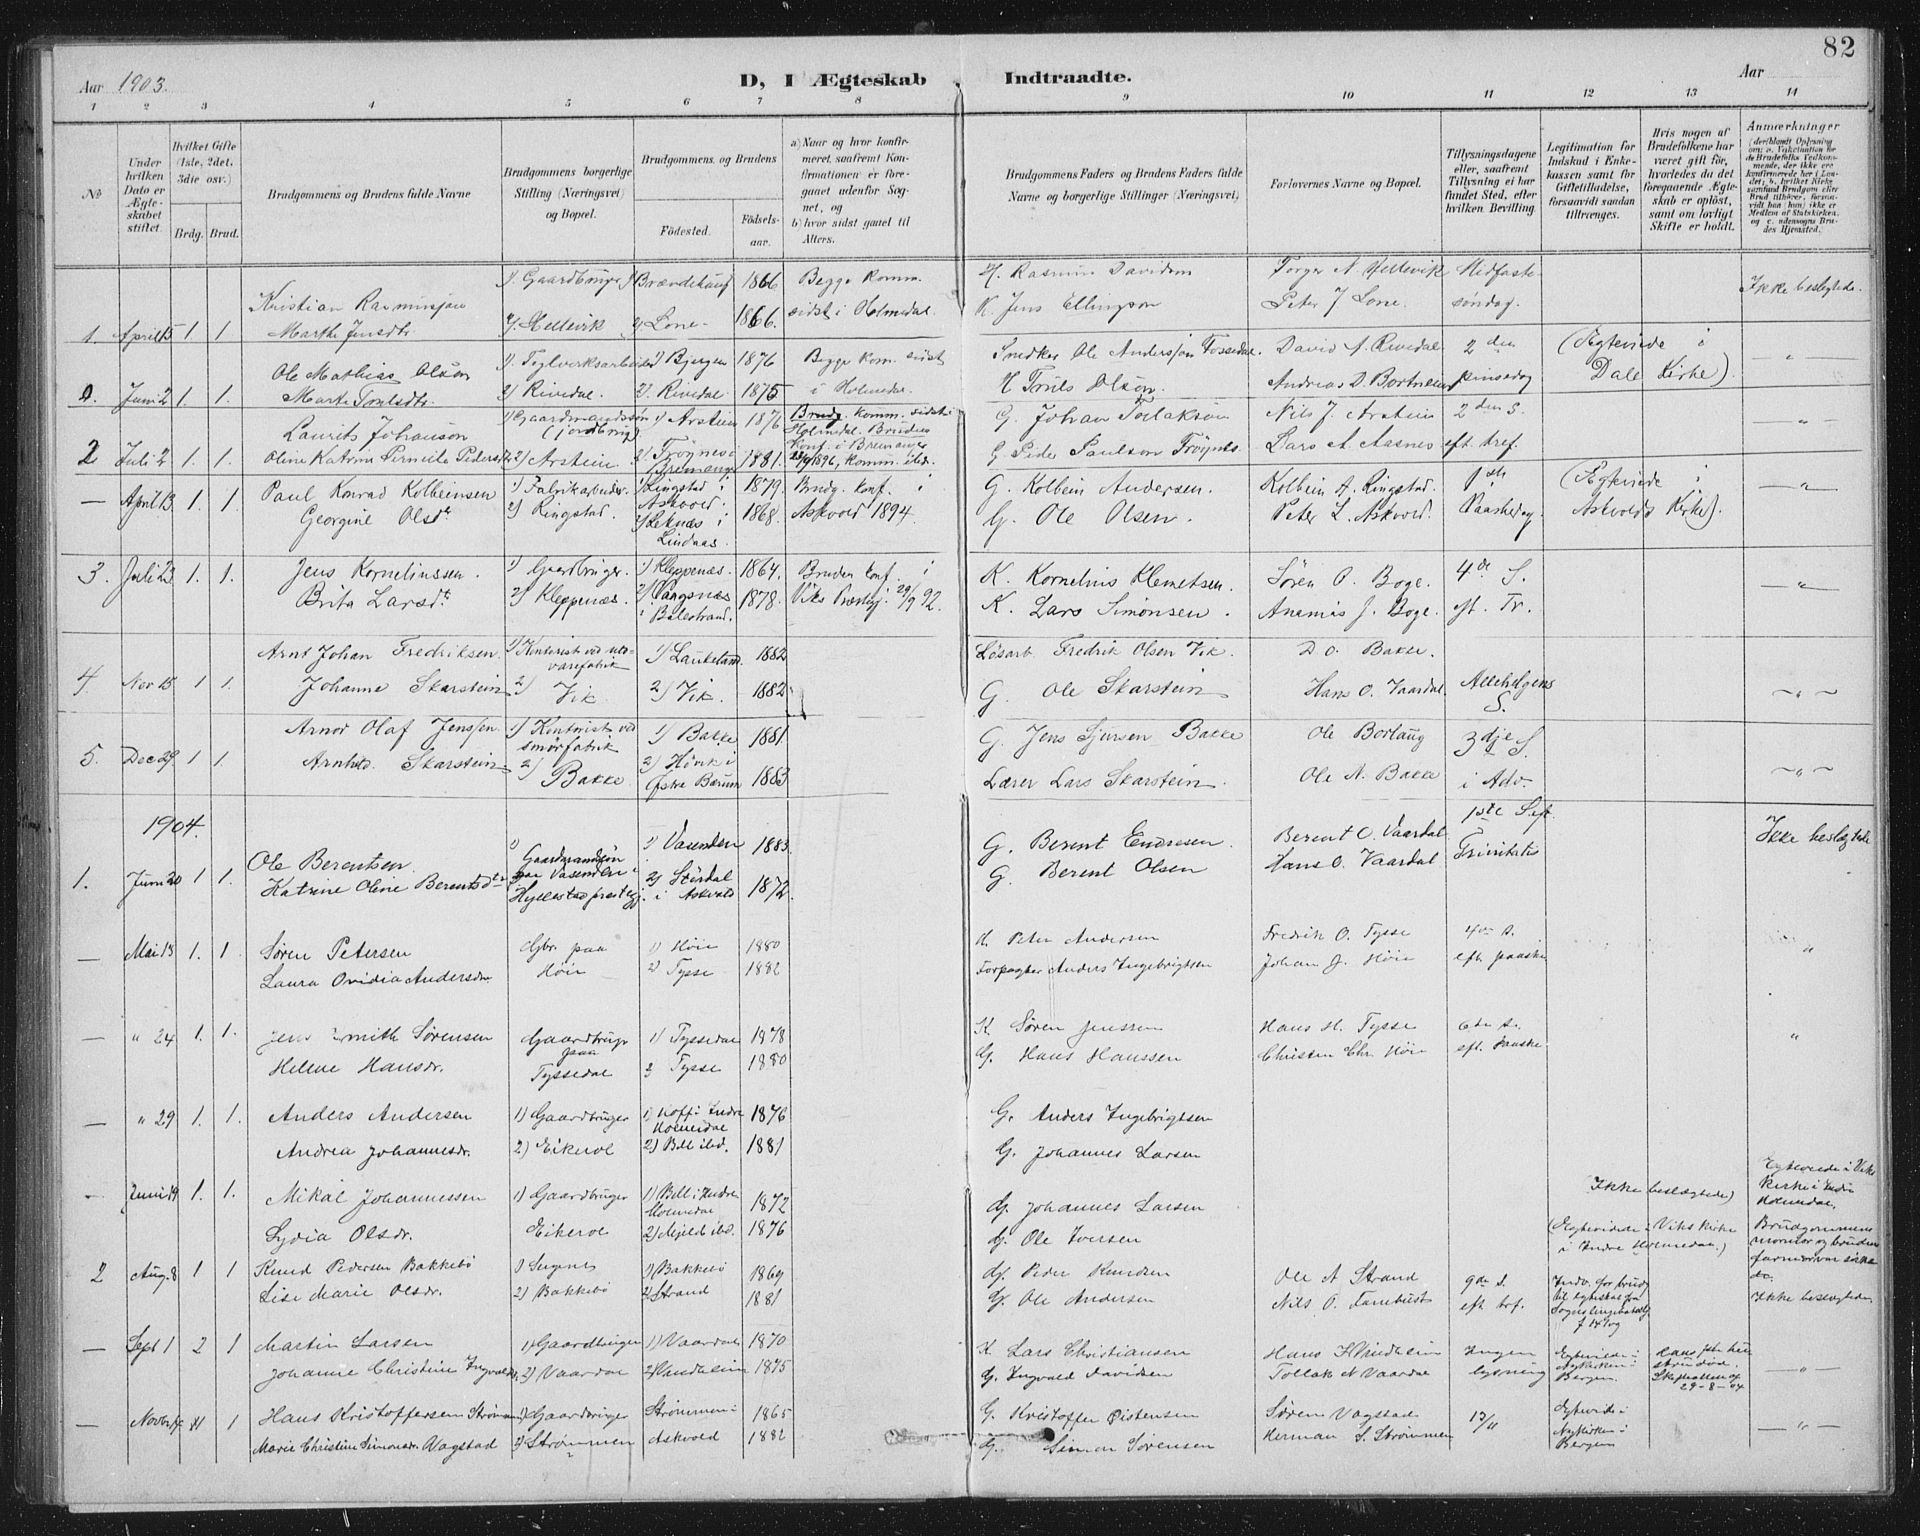 82
Aar 1903.
D, I Ægteskab Indtraadte.
Aar
1 2 3 4 5 6 7 8 9 10 11 12 13 14
No
Under hvilken Dato er Ægteskabet stiftet.
Hvilket Gifte (1ste, 2det, 3die osv.)
Brdg. Brud.
Brudgommens og Brudens fulde Navne
Brudgommens borgerlige Stilling (Næringsvei) og Bopæl.
Brudgommens og Brudens
Fødested. Fødselsaar.
a) Naar og hvor konfirmeret, saafremt Konfirmationen er foregaaet udenfor Sognet, og
b) hvor sidst gaaet til Alters.
Brudgommens Faders og Brudens Faders fulde Navne og borgerlige Stillinger (Næringsvei)
Forlovernes Navne og Bopæl.
Tillysningsdagene eller, saafremt Tillysning ei har fundet Sted, efter hvilken Bevilling.
Legitimation for Indskud i Enkekassen samt for Giftetilladelse, forsaavidt saadan tiltrænges.
Hvis nogen af Brudefolkene har været gift før, hvorledes da det foregaaende Ægteskab er opløst, samt om lovligt Skifte er holdt.
Anmærkninger
1. April 15 1. 1. Kristian Rasmussøn 1) Gaardbruger 1) Brændehaug 1866 Begge komm. K. Rasmus Davidson Torger N Hellevik Midfaste Ikke beslegtede.
Marthe Jensdtr 2) Hellevik 2) Lone 1866. sidst i Holmedal. K. Jens Ellingson Peter J Lone. søndag.
Ole Mathias Olson 1) Teglverksarbeider 1) Bjergen 1876 Begge kom. sidst Snedker Ole Andersson Fossedal. David A. Rivedal 2den (Egteviede i
Juni 2 1. 1. Marte Troelsdtr. 2) Rivedal. 2) Rivedal 1875 i Holmedal. K Troels Olson. Andreas D. Bortneim pinsedag Dale Kirke).
Laurits Johanson 1) Gaardmandssøn (jordbrug) 1) Arstein 1876 Brudg. komm. sidst i Holmedal. Bruden G. Johan Tollakson Nils J. Arstein 2den S.
2 Juli 2 1. 1. Oline Katrine Pernille Pedersdtr 2) Arstein 2) Frøynes i Bremanger 1881. Konf. i Bremanger 1896, komm. ibd. G. Peder Paulson Frøynes Lars A. Aasnes eft. tref.
— April 13 1. 1. Paul Konrad Kolbeinsen 1) Fabrikarbeider. 1) Ringstad i Askvold. 1879. Brudg. Konf. i G. Kolbein Andersen. Kolbein A. Ringstad. 1ste (Egteviede i
Georgine Olsdt 2) Ringstad. 2) Leknæs i Lindaas. 1868. Askvold 1894. G. Ole Olsen. Peter L. Askvold. Paaskedag Askvolds Kirke).
3. Juli 23 1. 1. Jens Kornelinssen. 1) Gaardbruger. 1) Kleppenæs. 1864. Bruden Konf. i K. Kornelius Klemetsen. Søren O. Boge. 4de S.
Brita Larsdt 2) Kleppenæs. 2) Vangsnæs i Balestrand. 1878. Viks Præstegj. 29/9 92. K. Lars Simonsen. Ananias J. Boge. eft. Tr.
Arnt Johan Fredriksen 1) Kontorist ved uldvarefabrik 1) Laukeland 1882 Løsarb. Fredrik Olsen Vik. D. O. Bakke.
4 Nov 15 1 1. Johanne Skarstein 2) Vik. 2) Vik. 1882 G. Ole Skarstein Hans O. Vaardal Allehelgens S.
Arnor Olaf Jenssen 1) Kontorist ved smørfabrik 1) Bakke 1881. G. Jens Sjursen Bakke Ole Borlaug 3dje S.
5. Dec 29 1 1. Arnhild Skarstein 2) Bakke 2) Høvik i Østre Bærum 1883 Lærer Lars Skarstein. Ole N. Bakke i Adv.
1904.
1. Juni 20 1. 1. Ole Berentsen 1) Gaardmandssøn 1) Vasenden 1883 G. Berent Endresen Berent O. Vaardal 1ste S. eft Ikke beslegtede
Katrine Oline Berentsdtr paa Vasenden i Hyllestad prestegj. 2) Stordal i Askvold 1872. G. Berent Olsen Hans O. Vaardal Trinitatis
— Mai 13 1. 1 Søren Petersen Gbr. paa 1) Høie 1880 K. Peter Andersen Fredrik O. Tysse 4de S.
Laura Ovidia Andersdr. Høie 2) Tysse 1882 Forpagter Anders Ingebrigtsen Johan J. Høie eft paaske
— " 24 1. 1. Jens Smith Sørensen Gaardbrug 1) Tyssedal 1878 K. Søren Jenssen Hans H. Tysse 6te S.
Helene Hansdr. paa Tyssedal 2 Tysse 1880 G. Hans Hanssen Christen Chr. Høie eft. Paaske
— " 29 1. 1. Anders Andersen 1) Gaardbruger 1) Hoff i Indre Holmedal 1876 G. Anders Ingebrigtsen
Andrea Johannesdr. 2) Eikerol 2) Bell ibd. 1881 G. Johannes Larsen
- Juni 19 1. 1. Mikal Johannessen 1) Gaardbruger 1) Bell i Indre Holmedal 1872 G. Johannes Larsen Ikke beslægtede) Egteviede i Viks Kirke i Indre Holmedal.
Lydia Olsdr. Eikerol 2) Mjell ibd. 1876 G. Ole Iversen (Egteviede i Viks Kirke i Indre Holmedal.)
2 Aug. 8 1 1 Knud Pedersen Bakkebø 1) Sugnes 1) Bakkebø 1869 G. Peder Knudsen Ole N Strand 9de S. Brudgommens mormor og brudens farmor var søskende.
Lise Marie Olsdr. 2) Bakkebø 2) Strand 1881 G. Ole Andersen Nils O. Tannebust eft trf. Ikke beslegtede
— Sept 1 2 1 Martin Larsen 1) Gaardbruger 1) Vaardal 1870 K Lars Christiansen Hans H Kindheim Ingen Egteviede i Nykirken i Bergen.
Johanne Christine Ingvaldsdr. 2) Vaardal 2) Kandheim 1875 G. Ingvald Davidsen Tollak N Vaardal lysning 29-8-04
— Novbr. 14 1 Hans Kristoffersen Strømmen 1) Gaardbruger Strømmen i 1865 G. Kristoffer Østensen Søren Vagstad 13/11 Egteviede i Nykirken i Bergen
Marie Christine Simonsdr. Vagstad 2) Strømmen Askvold 1882 G. Simon Sørensen Herman S. Strømmen